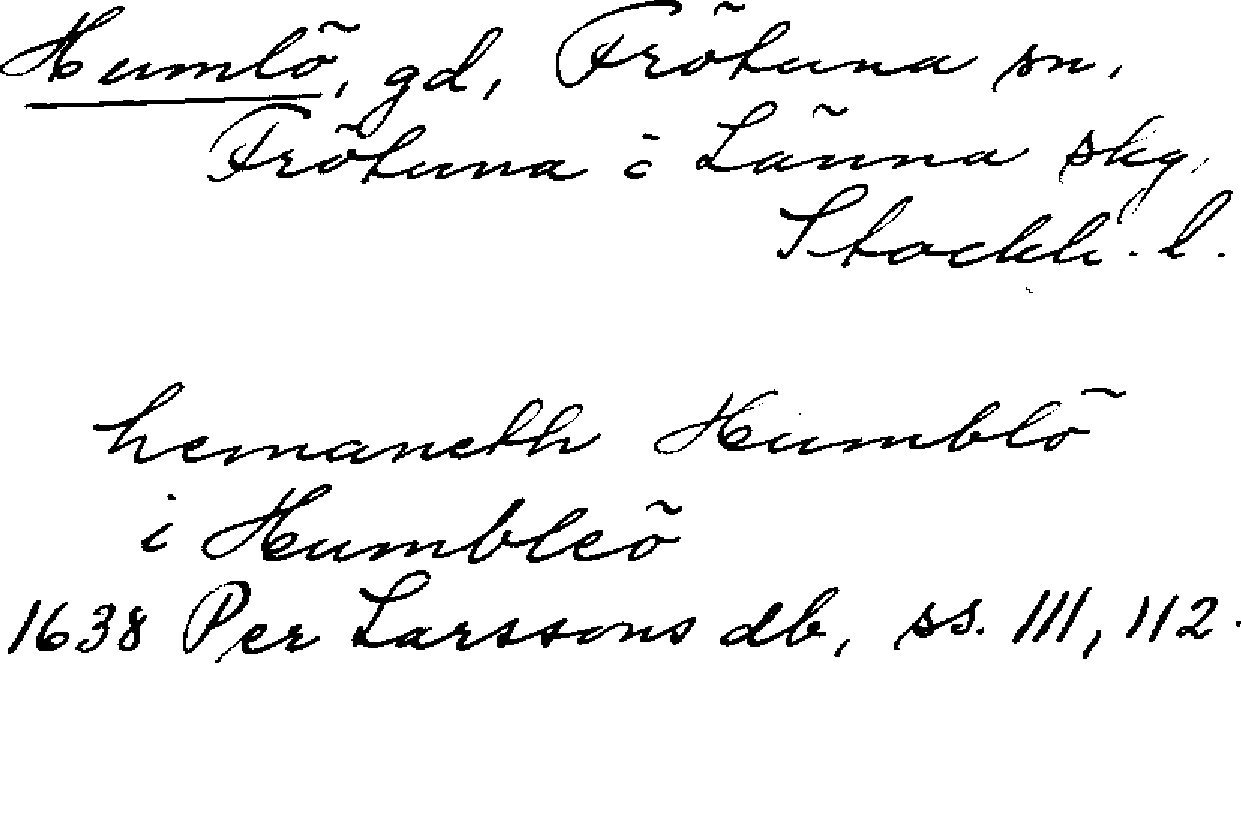 Humlö, gd, Frötuna sn,
Frötuna i Länna skg,
Stockh. l.
hemaneth Humblö
i Humbleö
1638 Per Larssons db, ss. 111, 112.